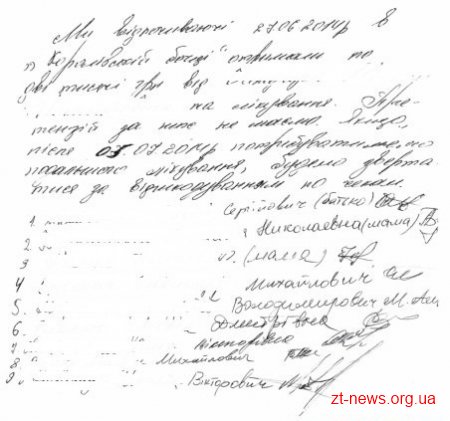 Ми відпочиваючі 27.06.2014р в
"Королівській бочці" отримали по
дві тисячі грн від
на лікування. Пре-
тензій до них не маємо. Якщо,
після 07.07.2014р потрібуватимемо
подальшого лікування, будемо зверта
тися за відшкодуванням по чекам.
1. Сергійович (батько)
2. Николаевна (мама)
3 (мама)
4 Михайлович
5 Володимирович
6 Дмитрівна
7 Вікторівна
8 Михайлович
9 Вікторович
zt-news.org.ua